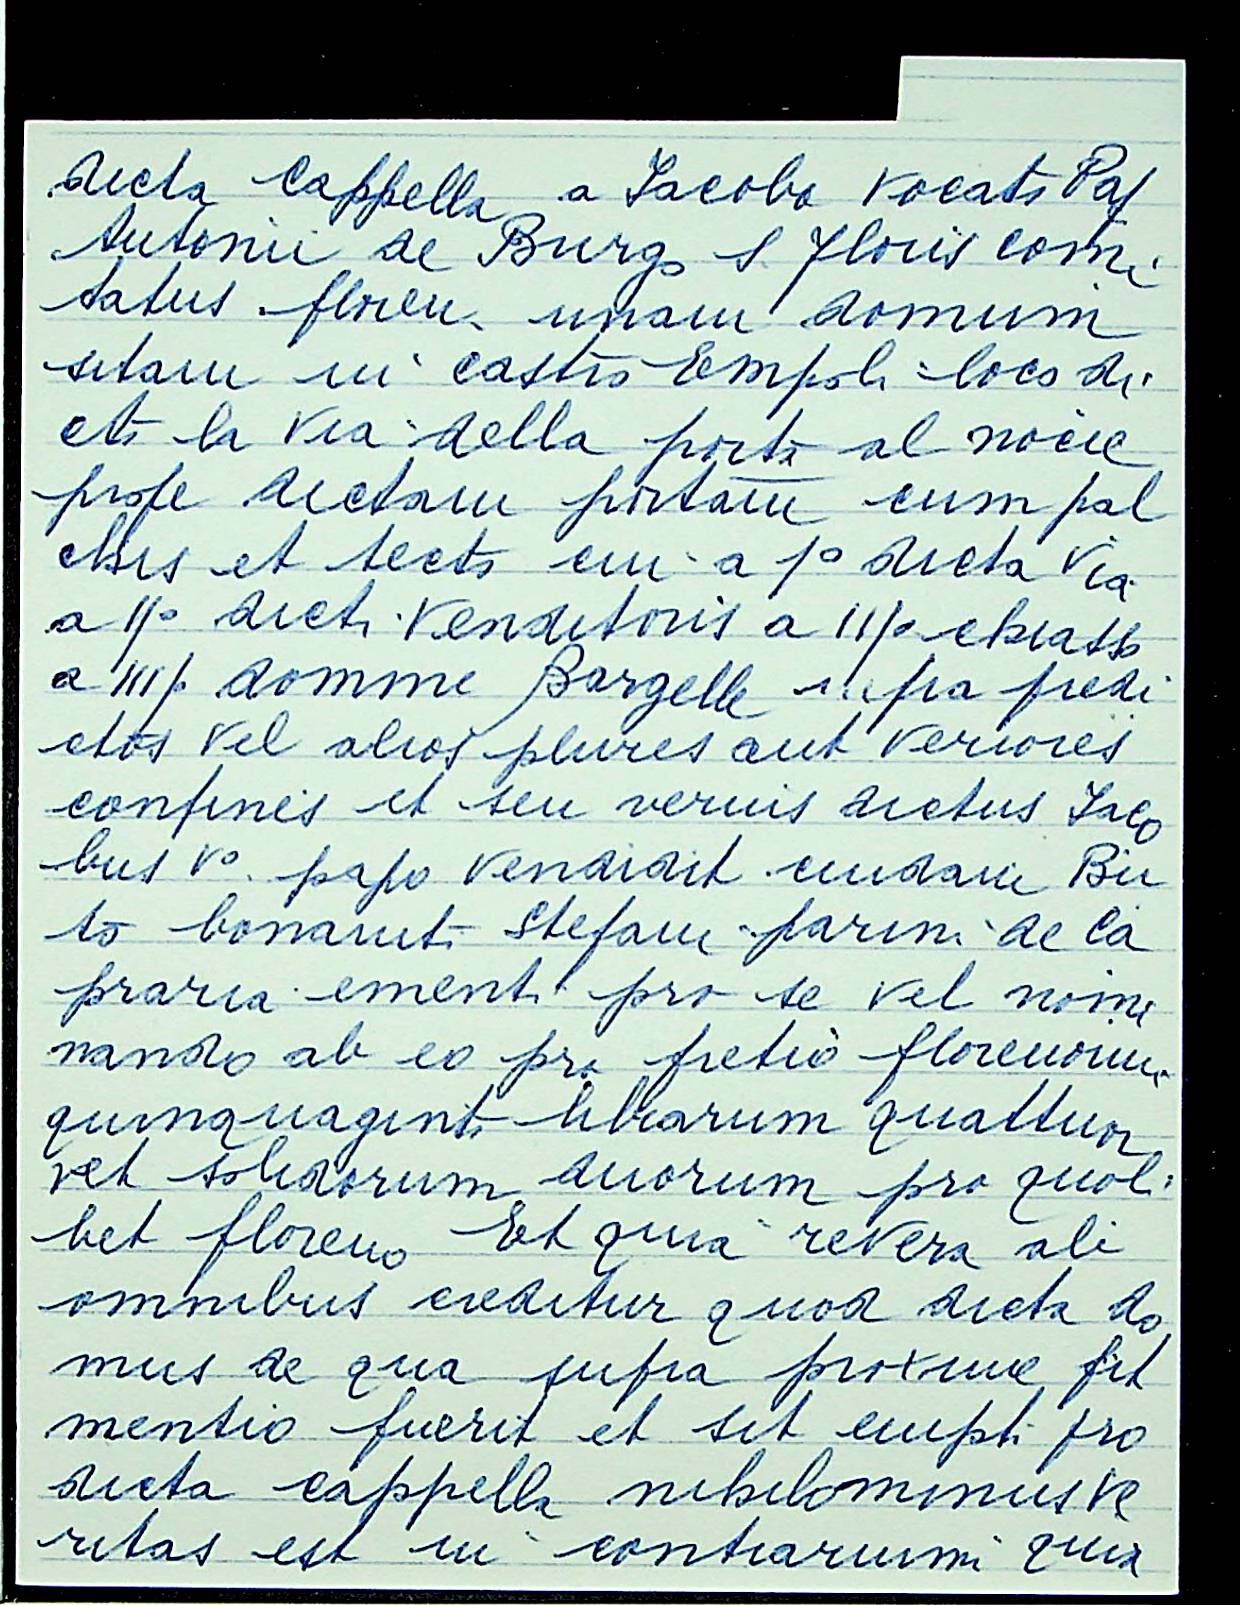 dicta cappella a Jacobo vocato Paf
Antonii de Burgo S. Floris comi
tatus floren. unam domum
sitam in castro Empoli loco di
cto la via della porta al noce
prope dictam portam cum pal
chis et tecto cui a p° dicta via
a II° dicti venditoris a III° chiasso
a IIII° domine Bargelle infra predi
ctos vel alios plures aut veriores
confines et seu veruis dictus Jaco
bus v° papo vendidit cuidam Bin
to bonaiuti Stefani parini de Ca
praria ementi pro se vel nomi
nando ab eo pro pretio florenorum
quinquaginta librarum quattuor
vel solidorum duorum pro quoli
bet floreno Et quia revera ab
omnibus creditur quod dicta do
mus de qua supra proxime fit
mentio fuerit et sit empta pro
dicta cappella nihilominus ve
ritas est in contrarium quia